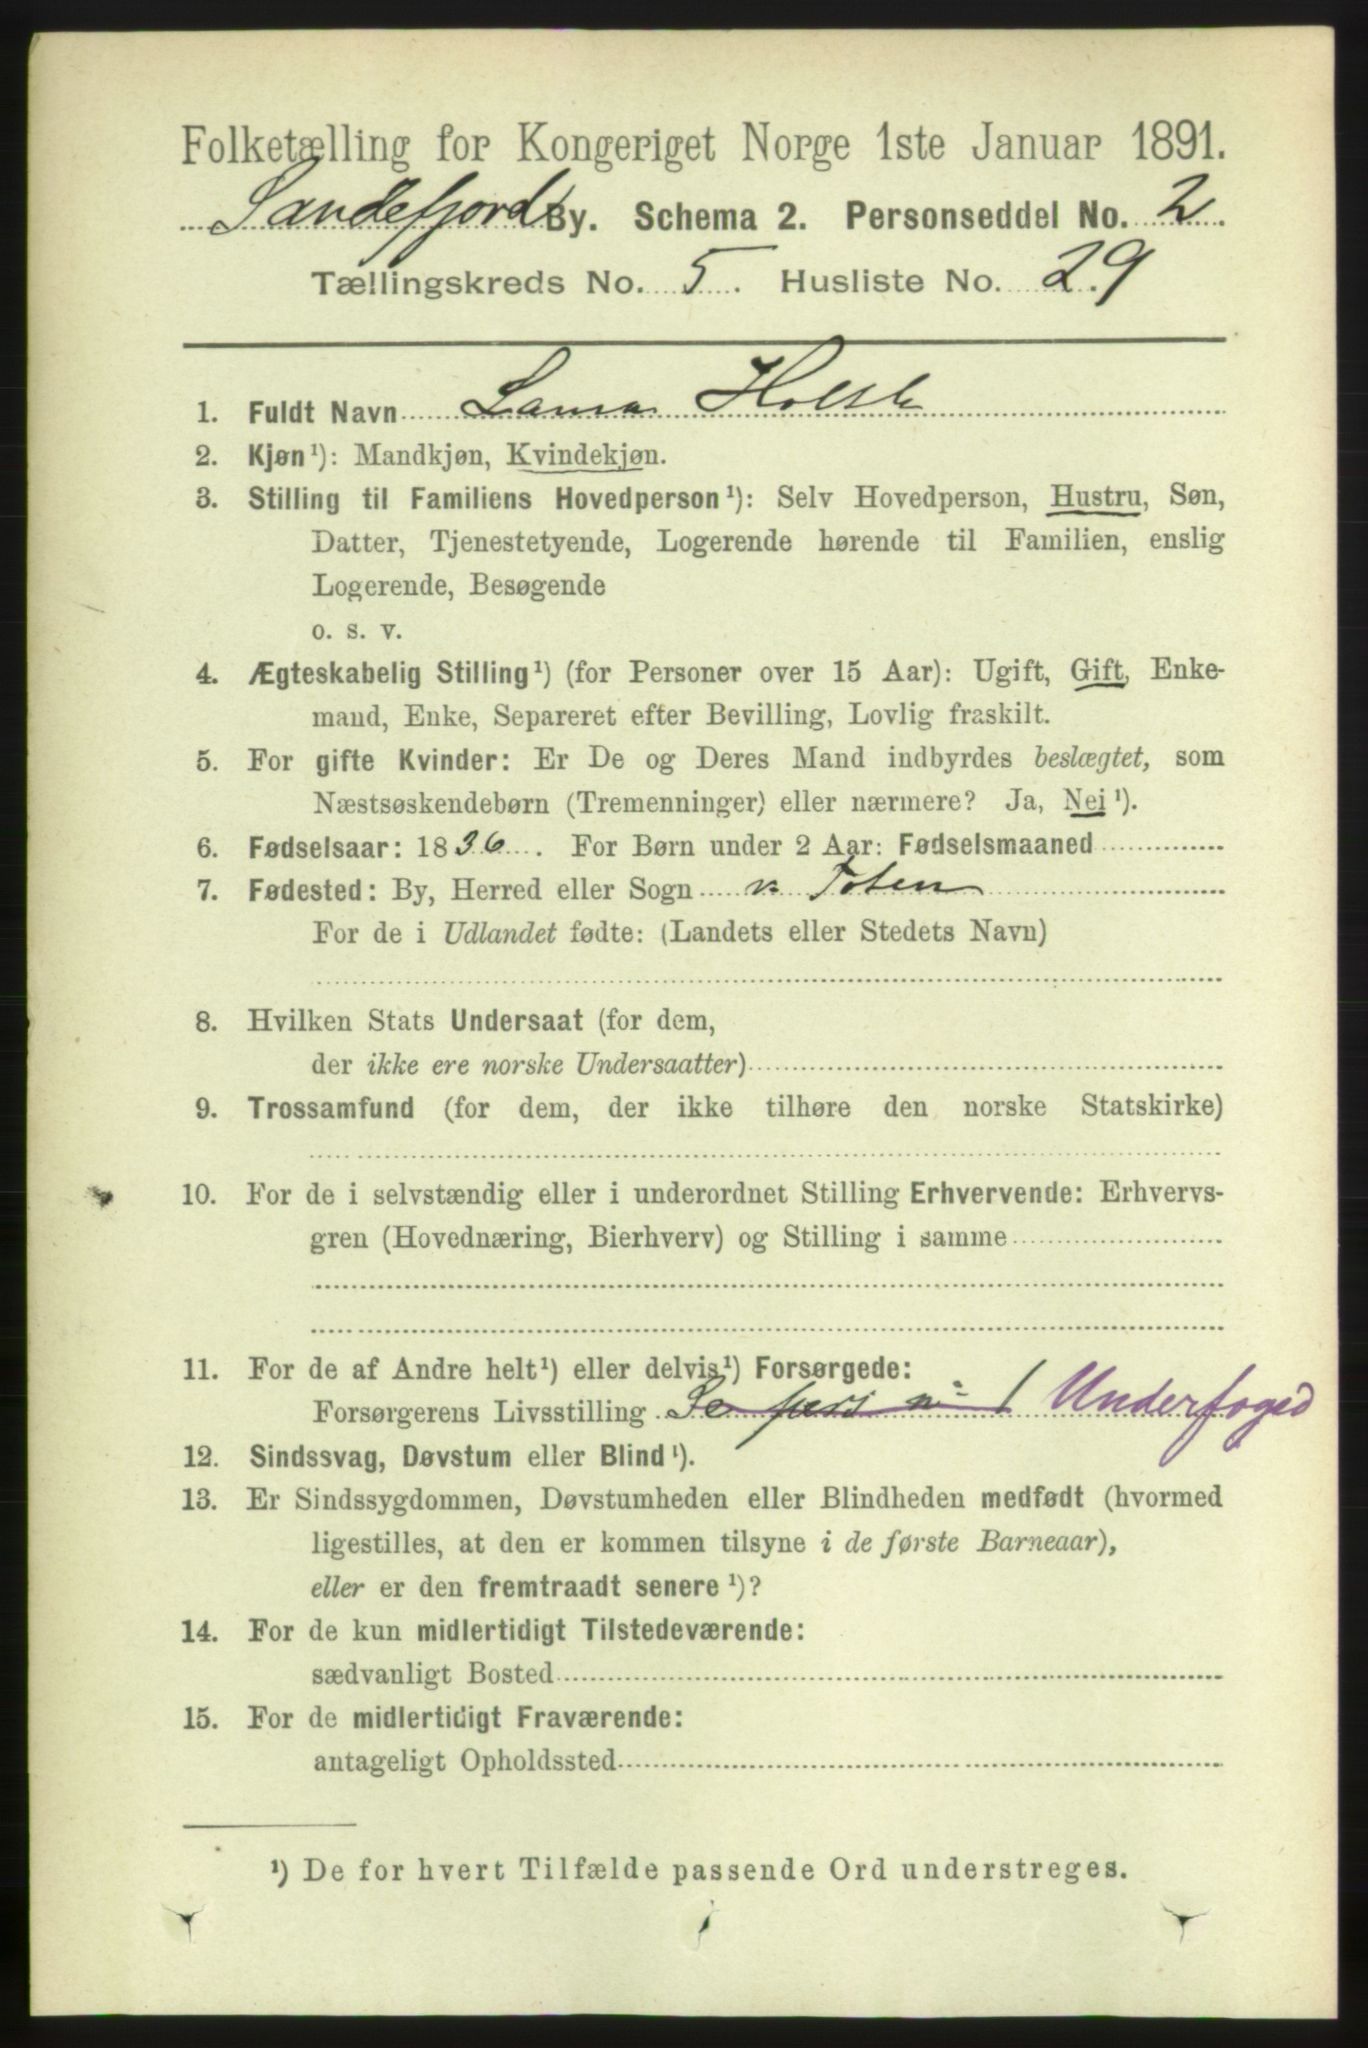 Folketælling for Kongeriget Norge 1ste Januar 1891.
Sandefjord By. Schema 2. Personseddel No. 2.
Tællingskreds No. 5. Husliste No. 29
1. Fuldt Navn Laura Holst
2. Kjøn¹): Mandkjøn, Kvindekjøn.
3. Stilling til Familiens Hovedperson¹): Selv Hovedperson, Hustru, Søn,
Datter, Tjenestetyende, Logerende hørende til Familien, enslig
Logerende, Besøgende
o. s. v.
4. Ægteskabelig Stilling¹) (for Personer over 15 Aar): Ugift, Gift, Enke-
mand, Enke, Separeret efter Bevilling, Lovlig fraskilt.
5. For gifte Kvinder: Er De og Deres Mand indbyrdes beslægtet, som
Næstsøskendebørn (Tremenninger) eller nærmere? Ja, Nei¹).
6. Fødselsaar: 1836. For Børn under 2 Aar: Fødselsmaaned
7. Fødested: By, Herred eller Sogn v. Toten
For de i Udlandet fødte: (Landets eller Stedets Navn)
8. Hvilken Stats Undersaat (for dem,
der ikke ere norske Undersaatter)
9. Trossamfund (for dem, der ikke tilhøre den norske Statskirke)
10. For de i selvstændig eller i underordnet Stilling Erhvervende: Erhvervs-
gren (Hovednæring, Bierhverv) og Stilling i samme
11. For de af Andre helt¹) eller delvis¹) Forsørgede:
Forsørgerens Livsstilling Se pers no 1 Underfoged
12. Sindssvag, Døvstum eller Blind¹).
13. Er Sindssygdommen, Døvstumheden eller Blindheden medfødt (hvormed
ligestilles, at den er kommen tilsyne i de første Barneaar),
eller er den fremtraadt senere¹)?
14. For de kun midlertidigt Tilstedeværende:
sædvanligt Bosted
15. For de midlertidigt Fraværende:
antageligt Opholdssted
¹) De for hvert Tilfælde passende Ord understreges.